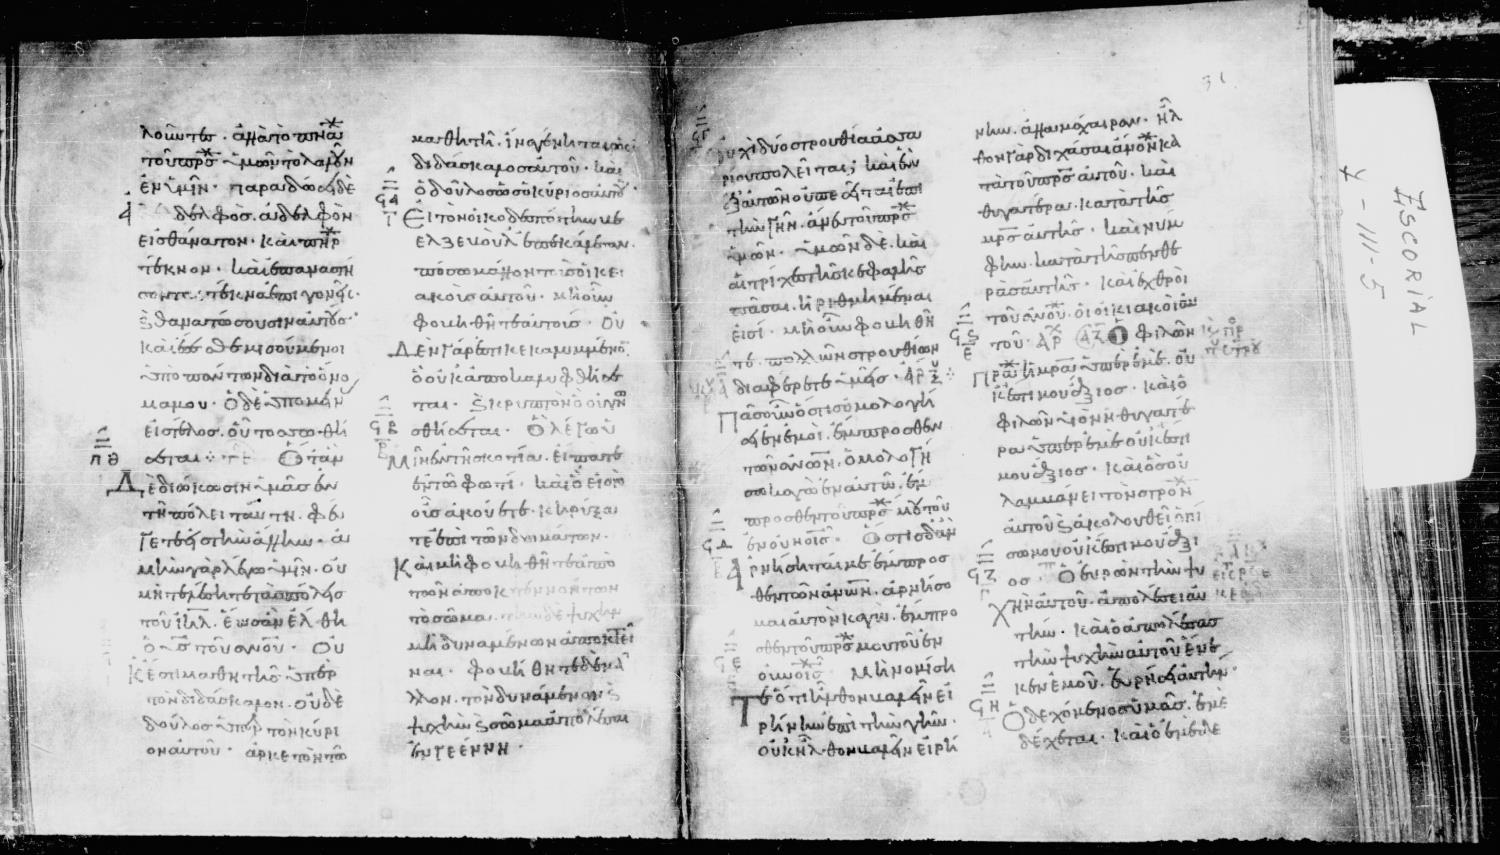 λοῦντες· ἀλλὰ τὸ πνᾶ
τοῦ πρς ὑμῶν τὸ λαλοῦν
ἐν ὑμῖν· παραδώσει δὲ
ἀδελφὸς ἀδελφὸν
εἰς θάνατον· καὶ πηρ
τέκνον· καὶ ἐπαναστή
σονται τέκνα ἐπὶ γονεῖς·
καὶ θανατώσουσιν αὐτούς·
καὶ ἔσεσθε μισούμενοι
ὑπὸ πάντων διὰ τὸ ὄνο
μά μου· ὁ δὲ ὑπομείν
εἰς τέλος· οὗτος σωθή
πθ
σεται· Ὅταν
δὲ διώκωσιν ὑμᾶς ἐν
τῇ πόλει ταύτη· φεύ
γετε εἰς τὴν ἄλλην· ἀ
μὴν γὰρ λέγω ὑμῖν· οὐ
μὴ τελέσητε τὰς πόλεις
τοῦ ιηλ· ἕως ἂν ἔλθη
ὁ υς τοῦ ανου· Οὐ
κ ἔστι μαθητὴς ὑπὲρ
τὸν διδάσκαλον· οὐδὲ
δοῦλος ὑπὲρ τὸν κύρι
ον αὐτοῦ· ἀρκετὸν τῶ
μαθητῆ· ἵνα γένηται ὡς
διδάσκαλος αὐτοῦ· καὶ
ὁ δοῦλος ὡς ὁ κύριος αὐτοῦ·
Εἰ τὸν οἰκοδεσπότην βε
ελζεβοὺλ ἐπεκάλεσαν·
πόσω μᾶλλον τοὺς οἰκει
ακοὺς αὐτοῦ· μὴ οὖν
φοβηθῆτε αὐτούς· Οὐ
δὲν γάρ ἐστι κεκαλυμμένον
ὃ οὐκ ἀποκαλυφθήσε
ται· καὶ κρυπτὸν ὃ οὐ γνω
σθήσεται· Ὃ λέγω ὑ
μῖν ἐν τῆ σκοτία· εἴπατε
ἐν τῶ φωτί· καὶ ὃ εἰς τὸ
οὖς ἀκούετε· κηρύξα
τε ἐπὶ τῶν δωμάτων·
Καὶ μὴ φοβηθῆτε ἀπὸ
τῶν ἀποκτεννόντων
τὸ σῶμα· τὴν δὲ ψυχὴν
μὴ δυναμένων ἀποκτεῖ
ναι· φοβήθητε δὲ μᾶ
λλον· τὸν δυνάμενον καὶ
ψυχὴν καὶ σῶμα ἀπολέσαι
ἐν γεέννη·
31
Οὐχὶ δύο στρουθία ἀσσα
ρίου πωλεῖται; καὶ ἓν
ἐξ αὐτῶν οὐ πεσεῖται ἐπὶ
τὴν γῆν· ἄνευ τοῦ πρς
ὑμῶν· ὑμῶν δὲ· καὶ
αἱ τρίχες τῆς κεφαλῆς
πᾶσαι· ἠριθμημέναι
εἰσί· μὴ οὖν φοβηθῆ
τε· πολλῶν στρουθίων
διαφέρετε ὑμεῖς·
Πᾶς οὖν ὅστις ὁμολογή
σει ἐν ἐμοὶ· ἔμπροσθεν
τῶν ανων· ὁμολογή
σω κἀγὼ ἐν αὐτῶ· ἔμ
προσθεν τοῦ πρς μου τοῦ
ἐν οὐνοῖς· Ὅστις δ' ἂν
ἀρνήσηταί με ἔμπροσ
θεν τῶν ανων· ἀρνήσο
μαι αὐτὸν κἀγὼ· ἔμπρο
σθεν τοῦ πρς μου τοῦ ἐν
οὐνοῖς· Μὴ νομίση
τε ὅτι ἦλθον βαλεῖν εἰ
ρήνην ἐπὶ τὴν γῆν·
οὐκ ἦλθον βαλεῖν εἰρή
νην· ἀλλὰ μάχαιραν· ἦλ
θον γὰρ διχάσαι ανον κα
τὰ τοῦ πρς αὐτοῦ· καὶ
θυγατέρα· κατὰ τῆς
μρς αὐτῆς· καὶ νύμ
φην· κατὰ τῆς πενθε
ρᾶς αὐτῆς· καὶ ἐχθροὶ
τοῦ ανου· οἱ οἰκιακοὶ αὐ
τοῦ· Ὁ φιλῶν
πρα ἢ μρα ὑπὲρ ἐμὲ· οὐ
κ ἔστι μου ἄξιος· καὶ ὁ
φιλῶν υἱὸν ἢ θυγατέ
ρα ὑπὲρ ἐμὲ οὐκ ἔστι
μου ἄξιος· καὶ ὃς οὐ
λαμβάνει τὸν στρον
αὐτοῦ καὶ ἀκολουθεῖ ὀπί
σω μου οὐκ ἔστι μου ἄξι
ος· Ὁ εὑρὼν τὴν ψυ
χὴν αὐτοῦ· ἀπολέσει αὐ
τήν· καὶ ὁ ἀπολέσας
τὴν ψυχὴν αὐτοῦ ἕνε
κεν ἐμοῦ· εὑρήσει αὐτήν·
Ὁ δεχόμενος ὑμᾶς· ἐμὲ
δέχεται· καὶ ὁ ἐμὲ δε
ESCORIAL
Y-III-5